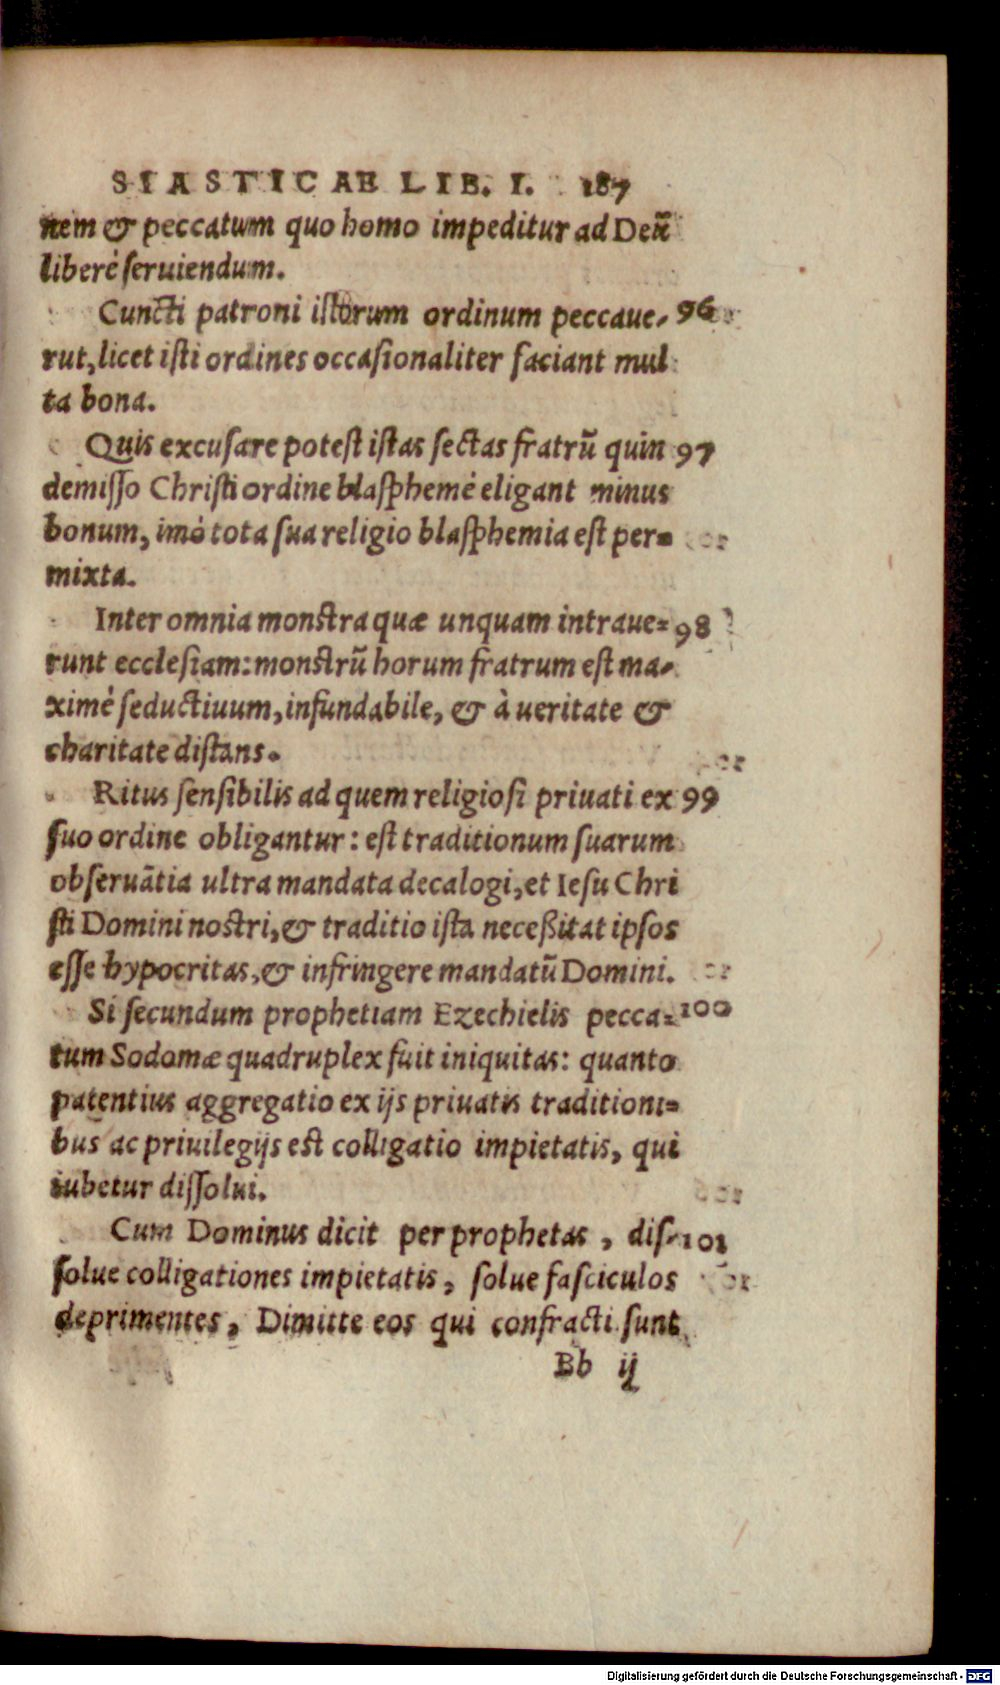 SIASTICAE LIB. I. 187
nem & peccatum quo homo impeditur ad Deũ
liberè seruiendum.
Cuncti patroni istorum ordinum peccaue- 96
rut, licet isti ordines occasionaliter faciant mul
ta bona.
Quis excusare potest istas sectas fratrũ quin 97
demisso Christi ordine blasphemè eligant minus
bonum, imò tota sua religio blasphemia est per=
mixta.
Inter omnia monstra quæ unquam intraue= 98
runt ecclesiam: monstrũ horum fratrum est ma-
ximè seductiuum, infundabile, & à ueritate &
charitate distans.
Ritus sensibilis ad quem religiosi priuati ex 99
suo ordine obligantur: est traditionum suarum
obseruãtia ultra mandata decalogi, et Iesu Chri
sti Domini nostri, & traditio ista necessitat ipsos
esse hypocritas, & infringere mandatũ Domini.
Si secundum prophetiam Ezechielis pecca= 100
tum Sodomæ quadruplex fuit iniquitas: quanto
patentius aggregatio ex ijs priuatis traditioni=
bus ac priuilegijs est colligatio impietatis, qui
iubetur dissolui.
Cum Dominus dicit per prophetas, dis- 101
solue colligationes impietatis, solue fasciculos
deprimentes, Dimitte eos qui confracti sunt
Bb ij
Digitalisierung gefördert durch die Deutsche Forschungsgemeinschaft - DFG